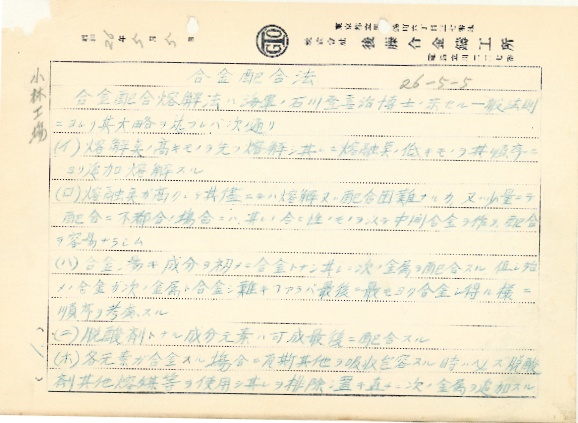 昭和 26年5月5日
GTO
株式会社 後藤合金鋳工所
小林工場
合金配合法
26-5-5
合金配合熔解法ハ海軍ノ石川登喜治博士ノ示セル一般法則
ニヨリ其大略ヲ述フレバ次ノ通リ
(イ) 熔解点ノ高キモノヲ先ヅ熔解シ其レニ熔融点ノ低キモノヲ其順序ニ
ヨリ添加熔解スル
(ロ) 熔融点ガ高クシテ其儘ニテハ熔解又ハ配合困難ナルカ 又ハ少量ニテ
配合ニ不都合ノ場合ニハ 其レト合ヒ性ノモノヨリ中間合金ヲ作リ 配合
ヲ容易ナラシム
(ハ) 合金シ易キ成分ヲ初メニ合金トナシ其レニ次ノ金属ヲ配合スル 但シ始
メノ合金ガ次ノ金属ト合金シ難キコトアラバ最後ニ最モヨク合金シ得ル様ニ
順序ヲ考慮スル
(ニ) 脱酸剤トナル成分元素ハ可成最後ニ配合スル
(ホ) 各元素ガ合金スル場合ニ瓦斯其他ヲ吸収包容スル時ハ 脱酸
剤其他熔媒等ヲ使用シ其レヲ排除シ置キ直チニ次ノ金属ヲ添加スル